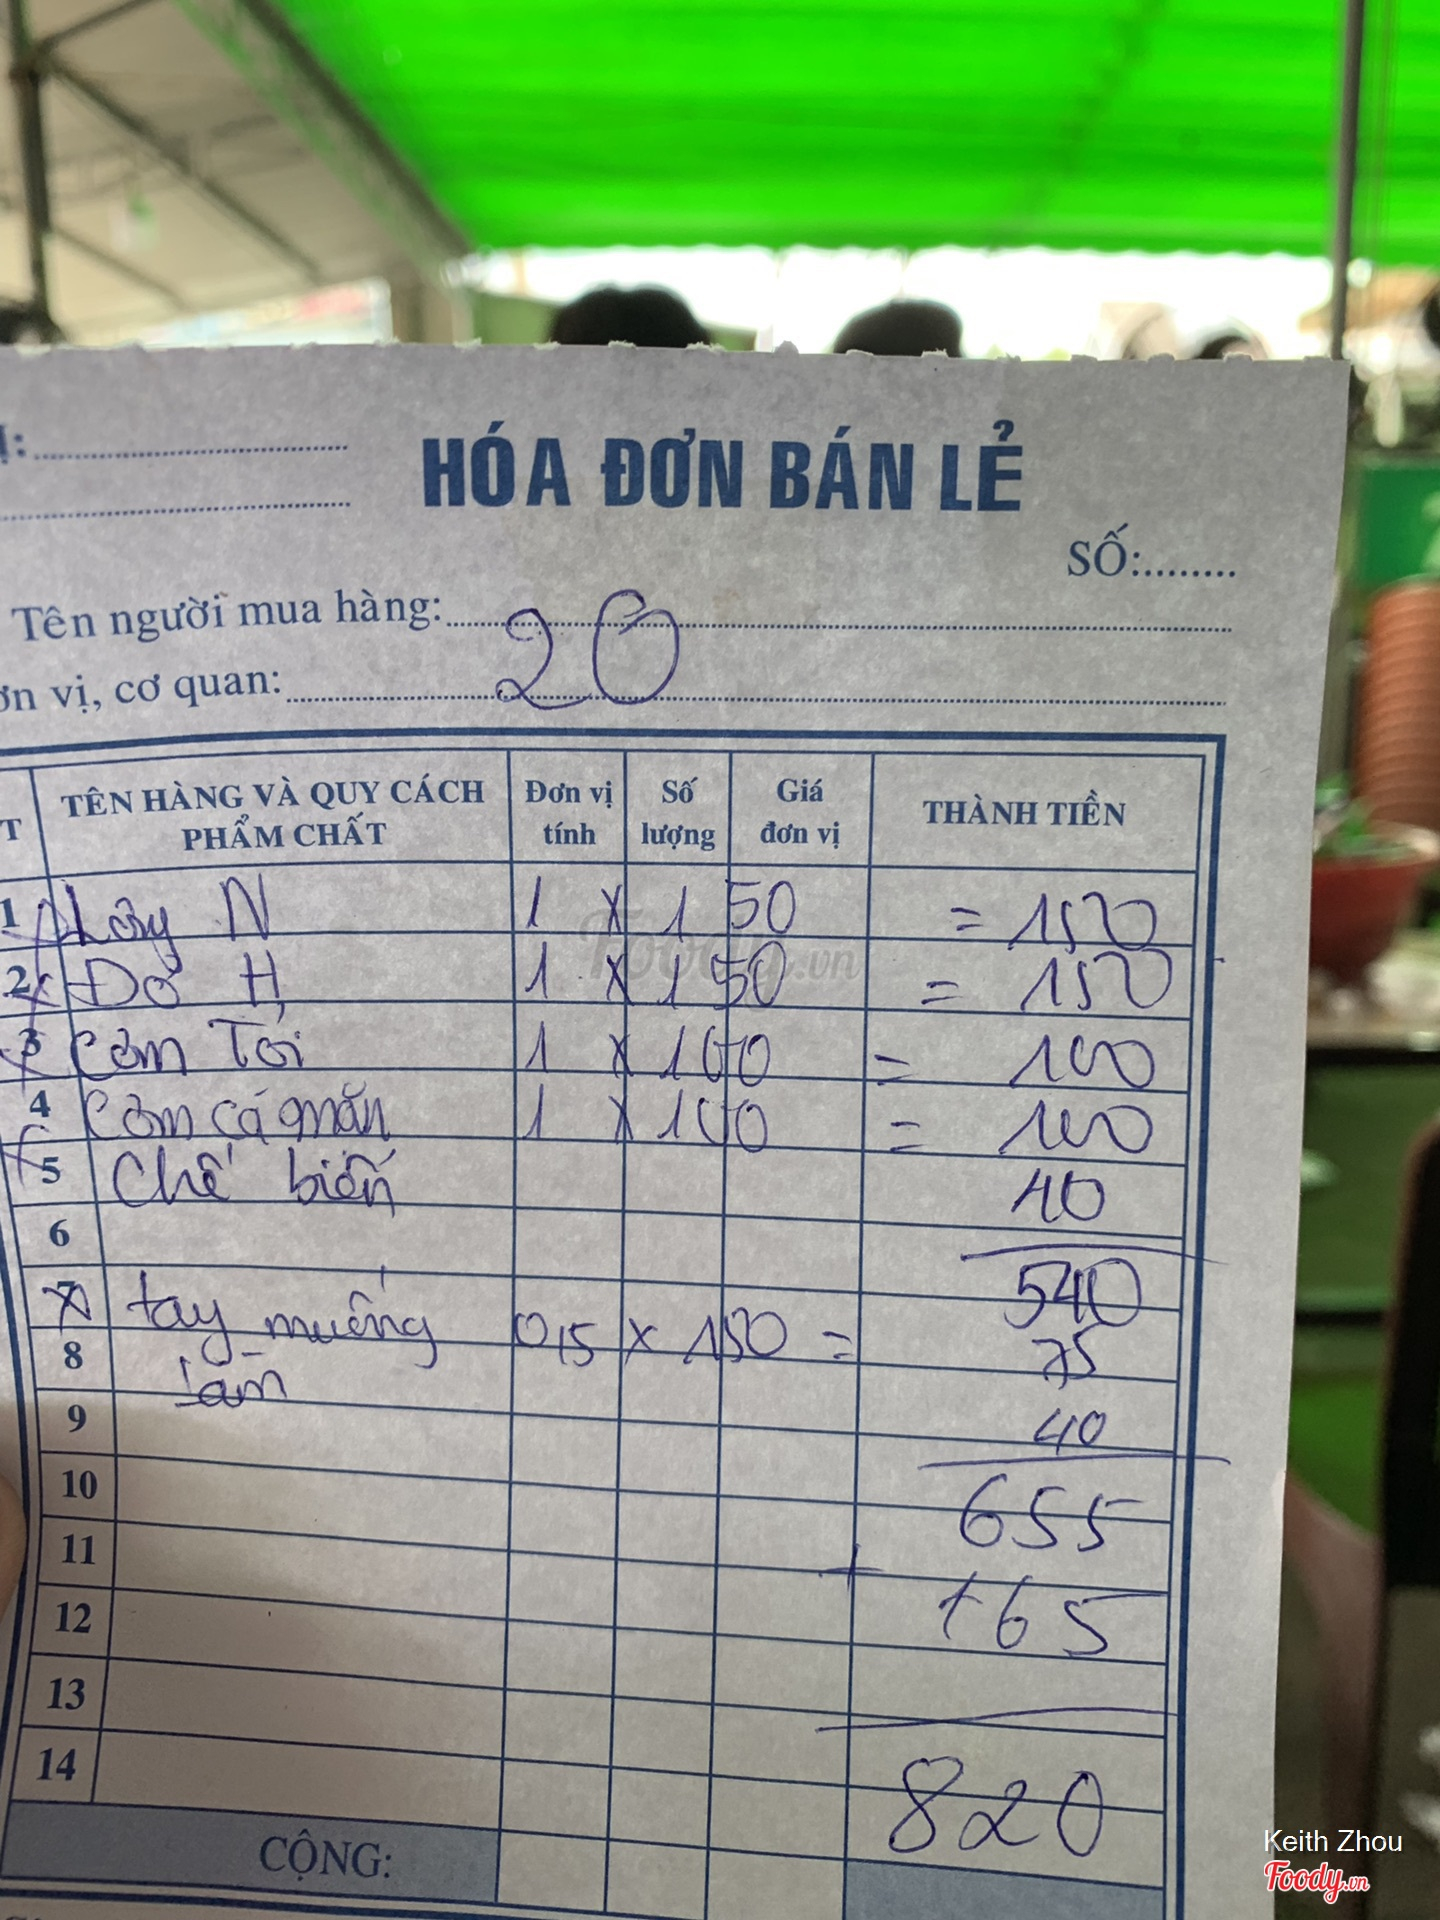 HÓA ĐƠN BÁN LẺ
SỐ:........
Tên người mua hàng: 20
ơn vị, cơ quan:
T TÊN HÀNG VÀ QUY CÁCH PHẨM CHẤT Đơn vị tính Số lượng Giá đơn vị THÀNH TIỀN
1 N 1 x 150 = 150
2 H 1 x 150 = 150
3 Cơm Tỏi 1 x 100 = 100
4 Cơm cá mặn 1 x 100 = 100
5 Chế biến 40
6 540
7 tay muống 0,5 x 150 = 75
8
9 40
10 655
11
12 +65
13
14 820
CỘNG:
Foody.vn
Keith Zhou
Foody.vn